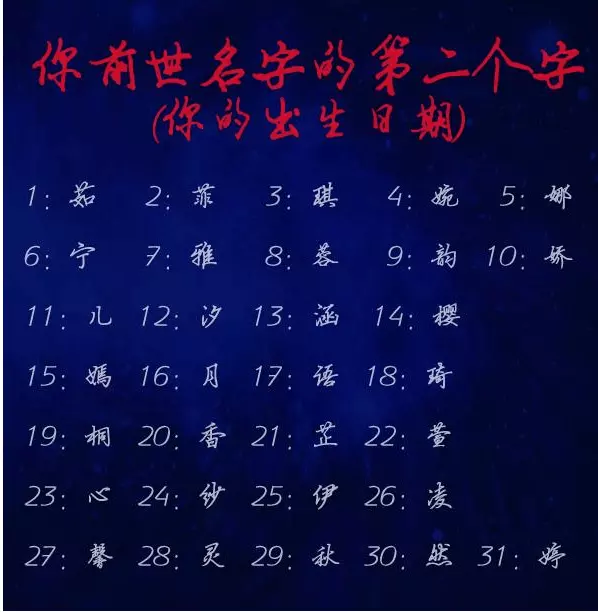 你前世名字的第二个字
(你的出生日期)
1：茹 2：菲 3：琪 4：婉 5：娜
6：宁 7：雅 8：蓉 9：韵 10：娇
11：儿 12：汐 13：涵 14：樱
15：嫣 16：月 17：语 18：琦
19：桐 20：香 21：芷 22：萱
23：心 24：纱 25：伊 26：凌
27：馨 28：灵 29：秋 30：然 31：婷